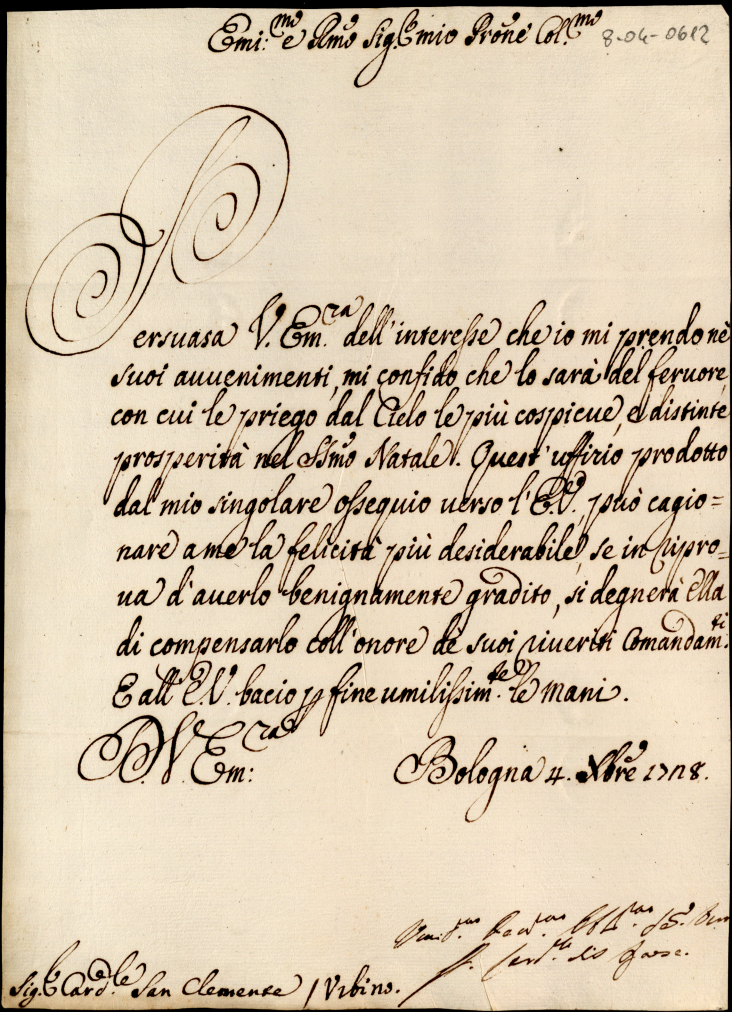 Emi:mo e Rmo Sig.r mio Prone Col.mo 8-04-0612
Persuasa V. Em.ra dell'interesse che io mi prendo nè
suoi auuenimenti, mi confido, che lo sarà del feruore,
con cui le priego dal Cielo le più cospicue, e distinte
prosperità nel SSmo Natale. Quest'uffizio prodotto
dal mio singolare ossequio verso l'E.V. può cagio=
nare a me la felicità più desiderabile, se in ripro=
ua d'auerlo benignamente gradito, si degnerà Ella
di compensarlo coll'onore dè suoi riueriti Comandam.ti
E all'E.V. bacio p fine umilissim.te le mani.
D. V. Em:ra Bologna 4. Xbre 1728.
Sig.r Card.le San Clemente / Vrbino.